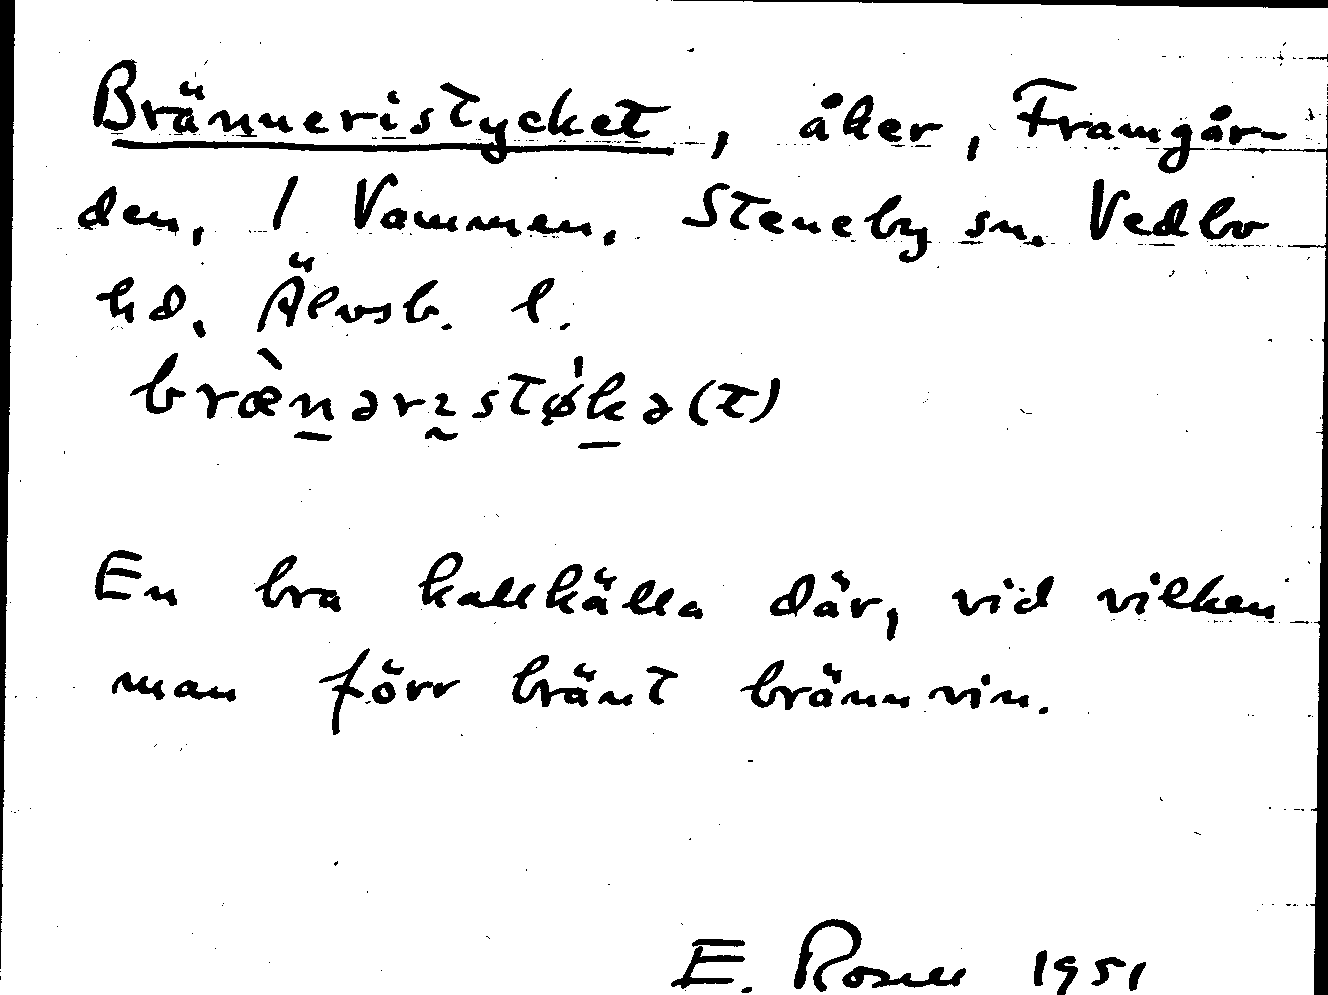 Bränneristycket, åker, Framgår-
den, 1 Vammen, Steneby sn. Vedbo
hd. Älvsb. l.
bræ̀n̲ərɪ̰støḱ̲ə(t)
En bra kallkälla där, vid vilken
man förr bränt brännvin.
E. Rosell 1951